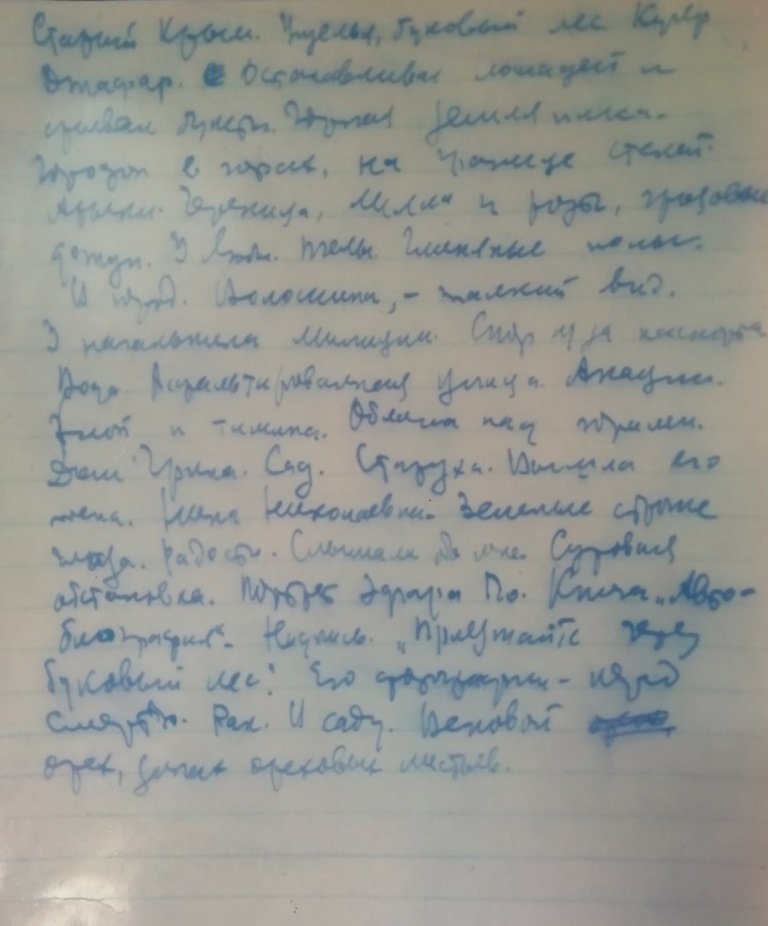 Старый Крым. Ущелья, буковый лес Кулер
Джафар. Останавливал лошадей и
срывал букеты. Горная земляника.
Городок в горах, на границе степей.
Арыки. Черепица, и розы, грозовые
дожди. Пчелы. Глиняные полы.
Волошина, – жалкий вид.
У начальника милиции. Спор из-за паспорта.
Вода. Асфальтированная улица. Акации.
Зной и тишина. Облака над горами.
Дом Грина. Сад. Старуха. Вышла его
жена. Нина Николаевна. Зеленые строгие
глаза. Радость. Слышала обо мне. Суровая
обстановка. Портрет Эдгара По. Книга „Авто-
биография“. Надпись. „Приезжайте через
буковый лес“. Его фотографии – перед
смертью. Рак. В саду. Вековой
орех, запах ореховых листьев.